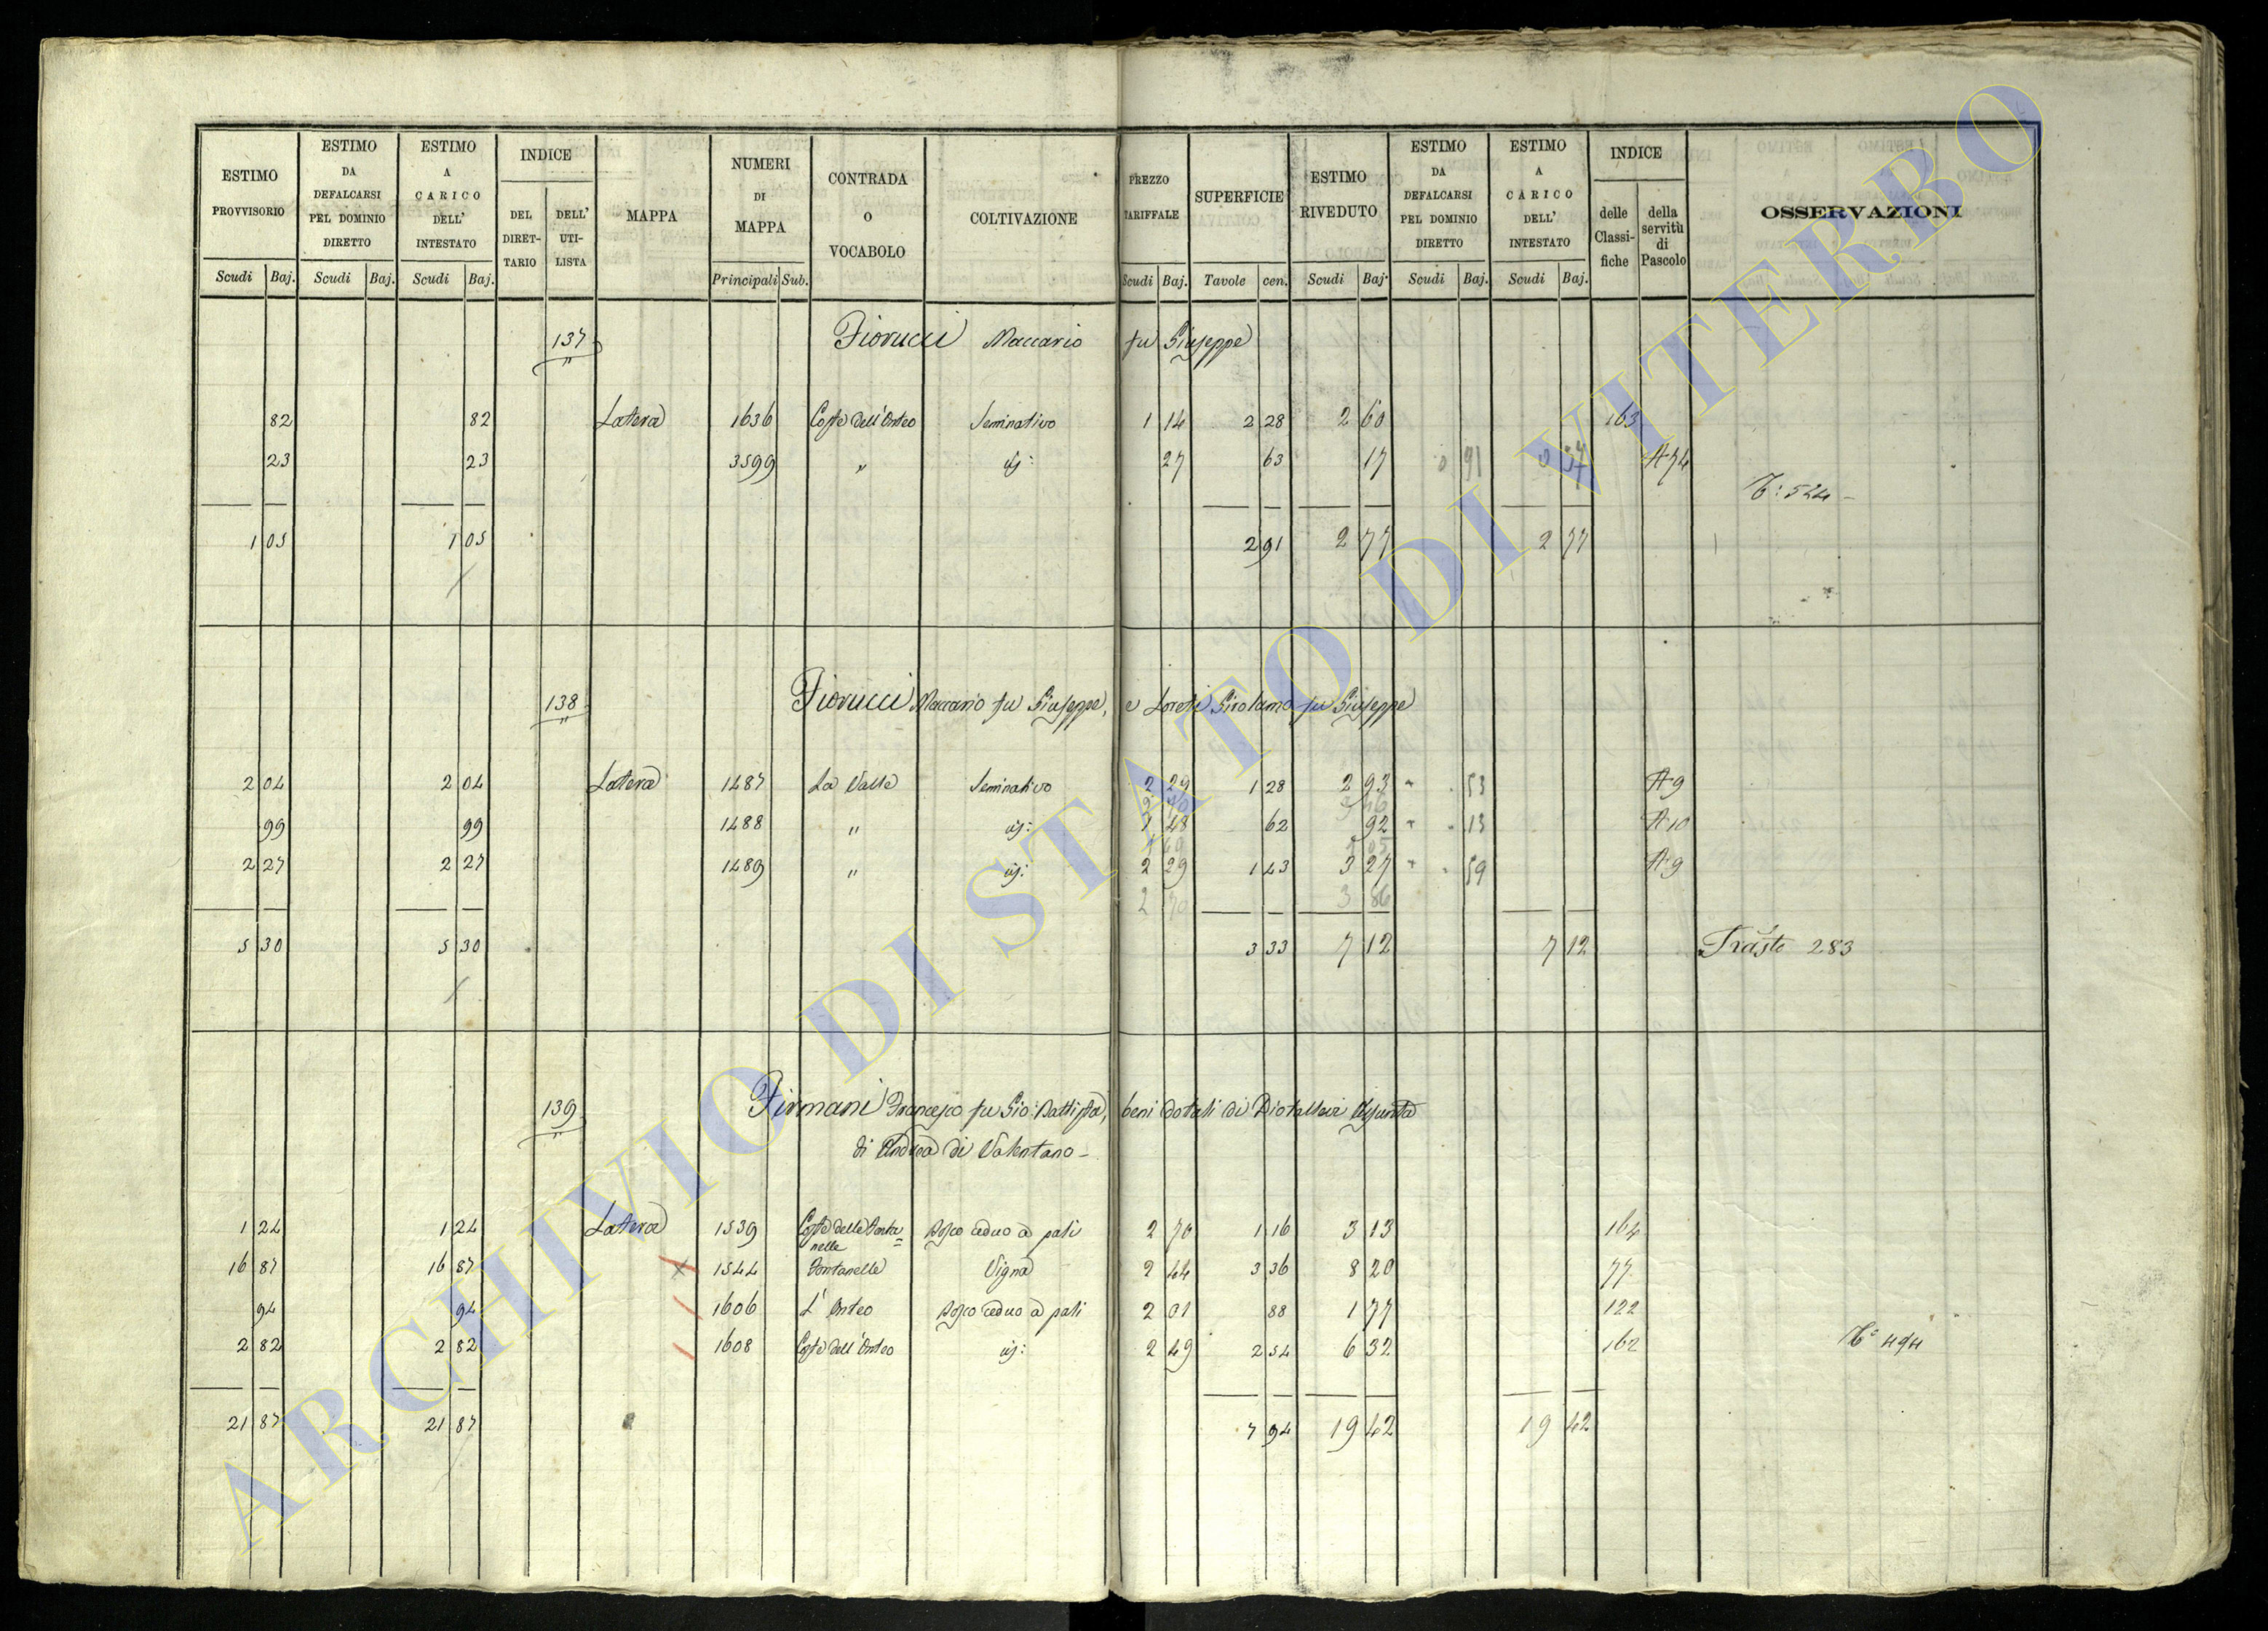 ESTIMO PROVVISORIO | ESTIMO DA DEFALCARSI PEL DOMINIO DIRETTO | ESTIMO A CARICO DELL' INTESTATO | INDICE | MAPPA | NUMERI DI MAPPA | CONTRADA O VOCABOLO | COLTIVAZIONE | PREZZO TARIFFALE | SUPERFICIE | ESTIMO RIVEDUTO | ESTIMO DA DEFALCARSI PEL DOMINIO DIRETTO | ESTIMO A CARICO DELL' INTESTATO | INDICE | OSSERVAZIONI
DEL DIRETTARIO | DELL' UTILISTA | delle Classifiche | della servitù di Pascolo
Scudi Baj. | Scudi Baj. | Scudi Baj. | Principali Sub. | Scudi Baj. | Tavole cen. | Scudi Baj. | Scudi Baj. | Scudi Baj.
137 Fiorucci Maccario fu Giuseppe
82 82 Latera 1636 Coste dell'Onteo Seminativo 1 14 2 28 2 60 163
23 23 3599 " id: 27 63 17 91 A 74
T: 524
1 05 1 05 2 91 2 77 2 77
138 Fiorucci Maccario fu Giuseppe, e Loreti Girolamo fu Giuseppe
2 04 2 04 Latera 1487 La Valle Seminativo 2 29 1 28 2 93 " 53 A 9
99 99 1488 " id: 1 48 62 92 " 13 A 10
2 27 2 27 1489 " id: 2 29 1 43 3 27 " 59 A 9
2 70 3 86
5 30 5 30 3 33 7 12 7 12 Trasto 283
139 Firmani Francesco fu Gio: Battista, beni dotali di Diotallevi Assunta
di Andrea di Valentano
1 24 1 24 Latera 1539 Coste delle Fonta=nelle Bosco ceduo a pali 2 70 1 16 3 13 164
16 87 16 87 1544 Fontanelle Vigna 2 44 3 36 8 20 77
94 94 1606 L'Onteo Bosco ceduo a pali 2 01 88 1 77 122
2 82 2 82 1608 Coste dell'Onteo id: 2 49 2 54 6 32 162 T° 494
21 87 21 87 7 94 19 42 19 42
ARCHIVIO DI STATO DI VITERBO